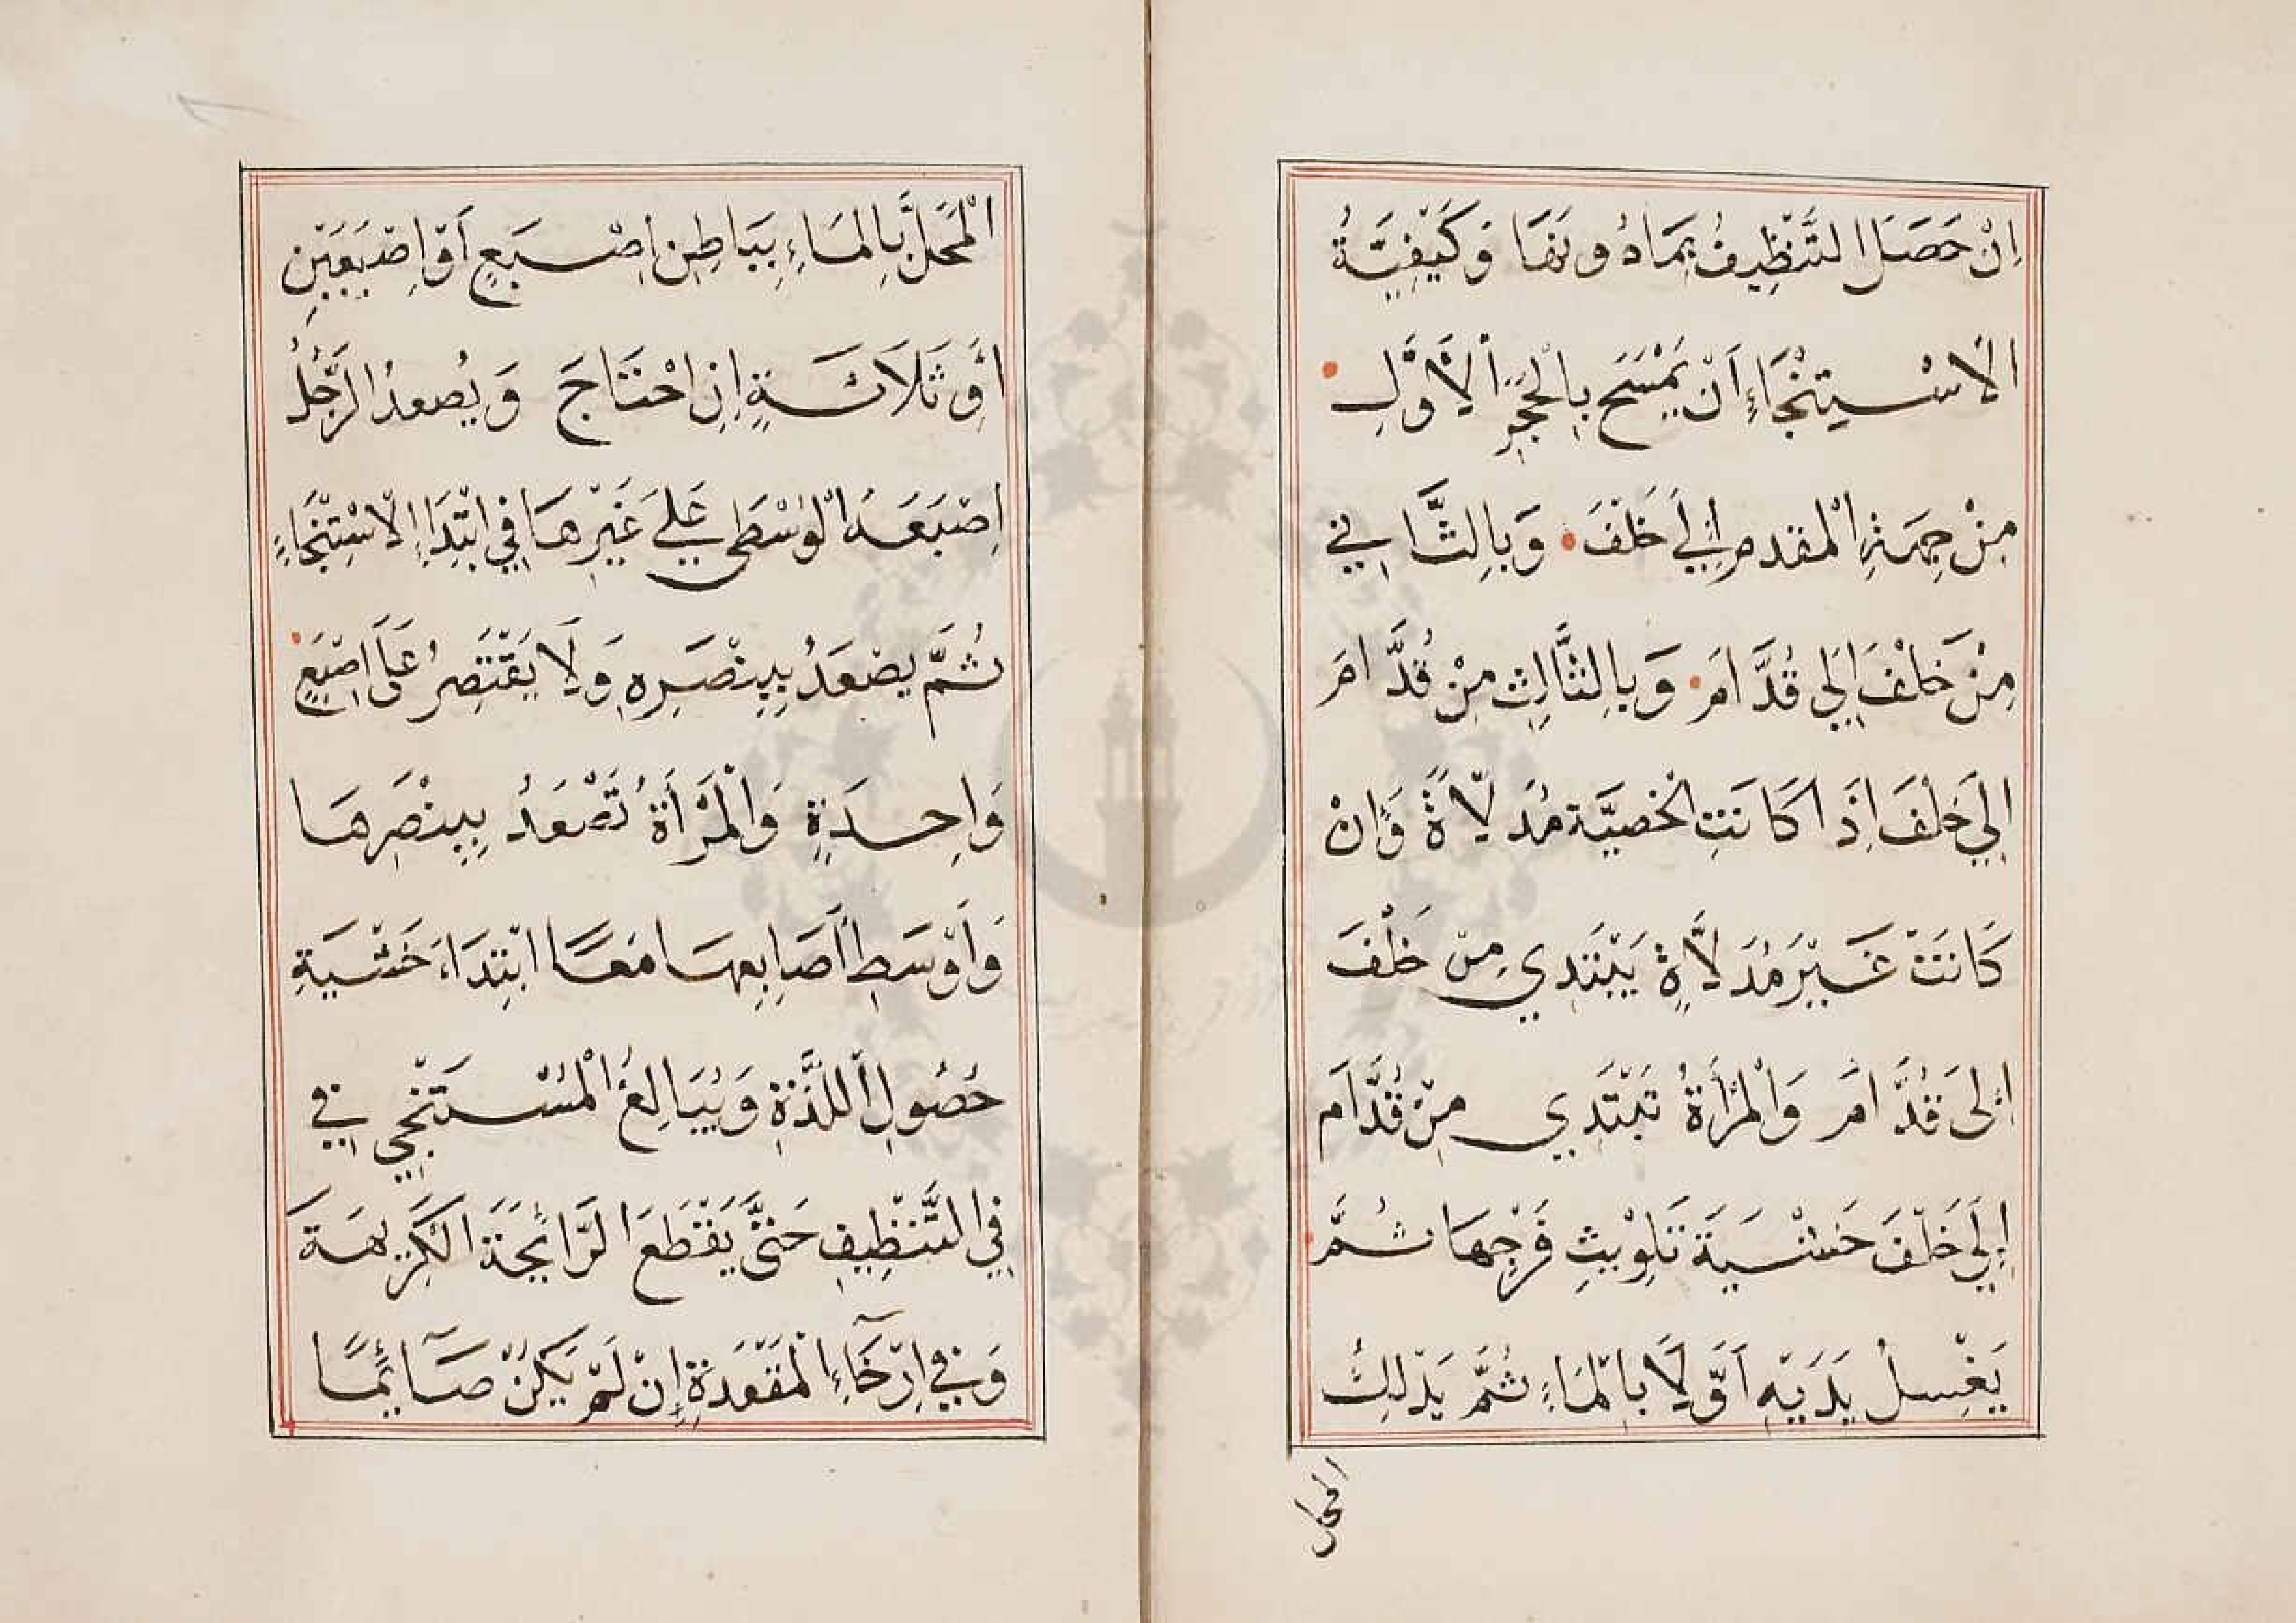 اِنْ حَصَلَ التَّنْظِيفُ بِمَا دُونَهَا وَكَيْفِيَّةُ
الْاِسْتِنْجَاءِ اَنْ يَمْسَحَ بِالْحَجَرِ الْاَوَّلِ
مِنْ جِهَةِ الْمقدم اِلَى خَلْفَ وَبِالثَّانِي
مِنْ خَلْفَ اِلَى قُدَّامَ وَبِالثَّالِثِ مِنْ قُدَّامَ
اِلَى خَلْفَ اِذَا كَانَتِ الْخصيَّة مُدَلَّاةً وَاِنْ
كَانَتْ غَيْرَ مُدَلَّاةٍ يَبْتَدِي مِنْ خَلْفَ
اِلَى قُدَّامَ وَالْمَرْأَةُ تَبْتَدِي مِنْ قُدَّامَ
اِلَى خَلْفَ خَشْيَةَ تَلْوِيثِ فَرْجِهَا ثُمَّ
يَغْسِلُ يَدَيْهِ اَوَّلًا بِالْمَاءِ ثُمَّ يَدْلِكُ
المحل
الْمَحَلَّ بِالْمَاءِ بِبَاطِنِ اِصْبَعٍ اَوْ اِصْبَعَيْنِ
اَوْ ثَلَاثَةٍ اِنِ احْتَاجَ وَيُصعدُ الرَّجُلُ
اِصْبَعَهُ الْوُسْطَى عَلَى غَيْرِهَا فِي ابْتِدَاءِ الْاِسْتِنْجَاءِ
ثُمَّ يصْعَدُ بِبِنْصَرِهِ وَلَا يَقْتَصِرُ عَلَى اِصْبَعٍ
وَاحِدَةٍ وَالْمَرْأَةُ تَصْعَدُ بِبِنْصَرِهَا
وَاَوْسَطِ اَصَابِعِهَا مَعًا ابْتِدَاءً خَشْيَةِ
حُصُولِ اللَّذَّةِ وَيُبَالِغُ الْمُسْتَنْجِي فِي
فِي التَّنْظِيفِ حَتَّى يَقْطَعَ الرَّائِحَةَ الْكَرِيهَةَ
وَفِي اِرْخَاءِ الْمَقْعَدَةِ اِنْ لَمْ يَكُنْ صَائِمًا